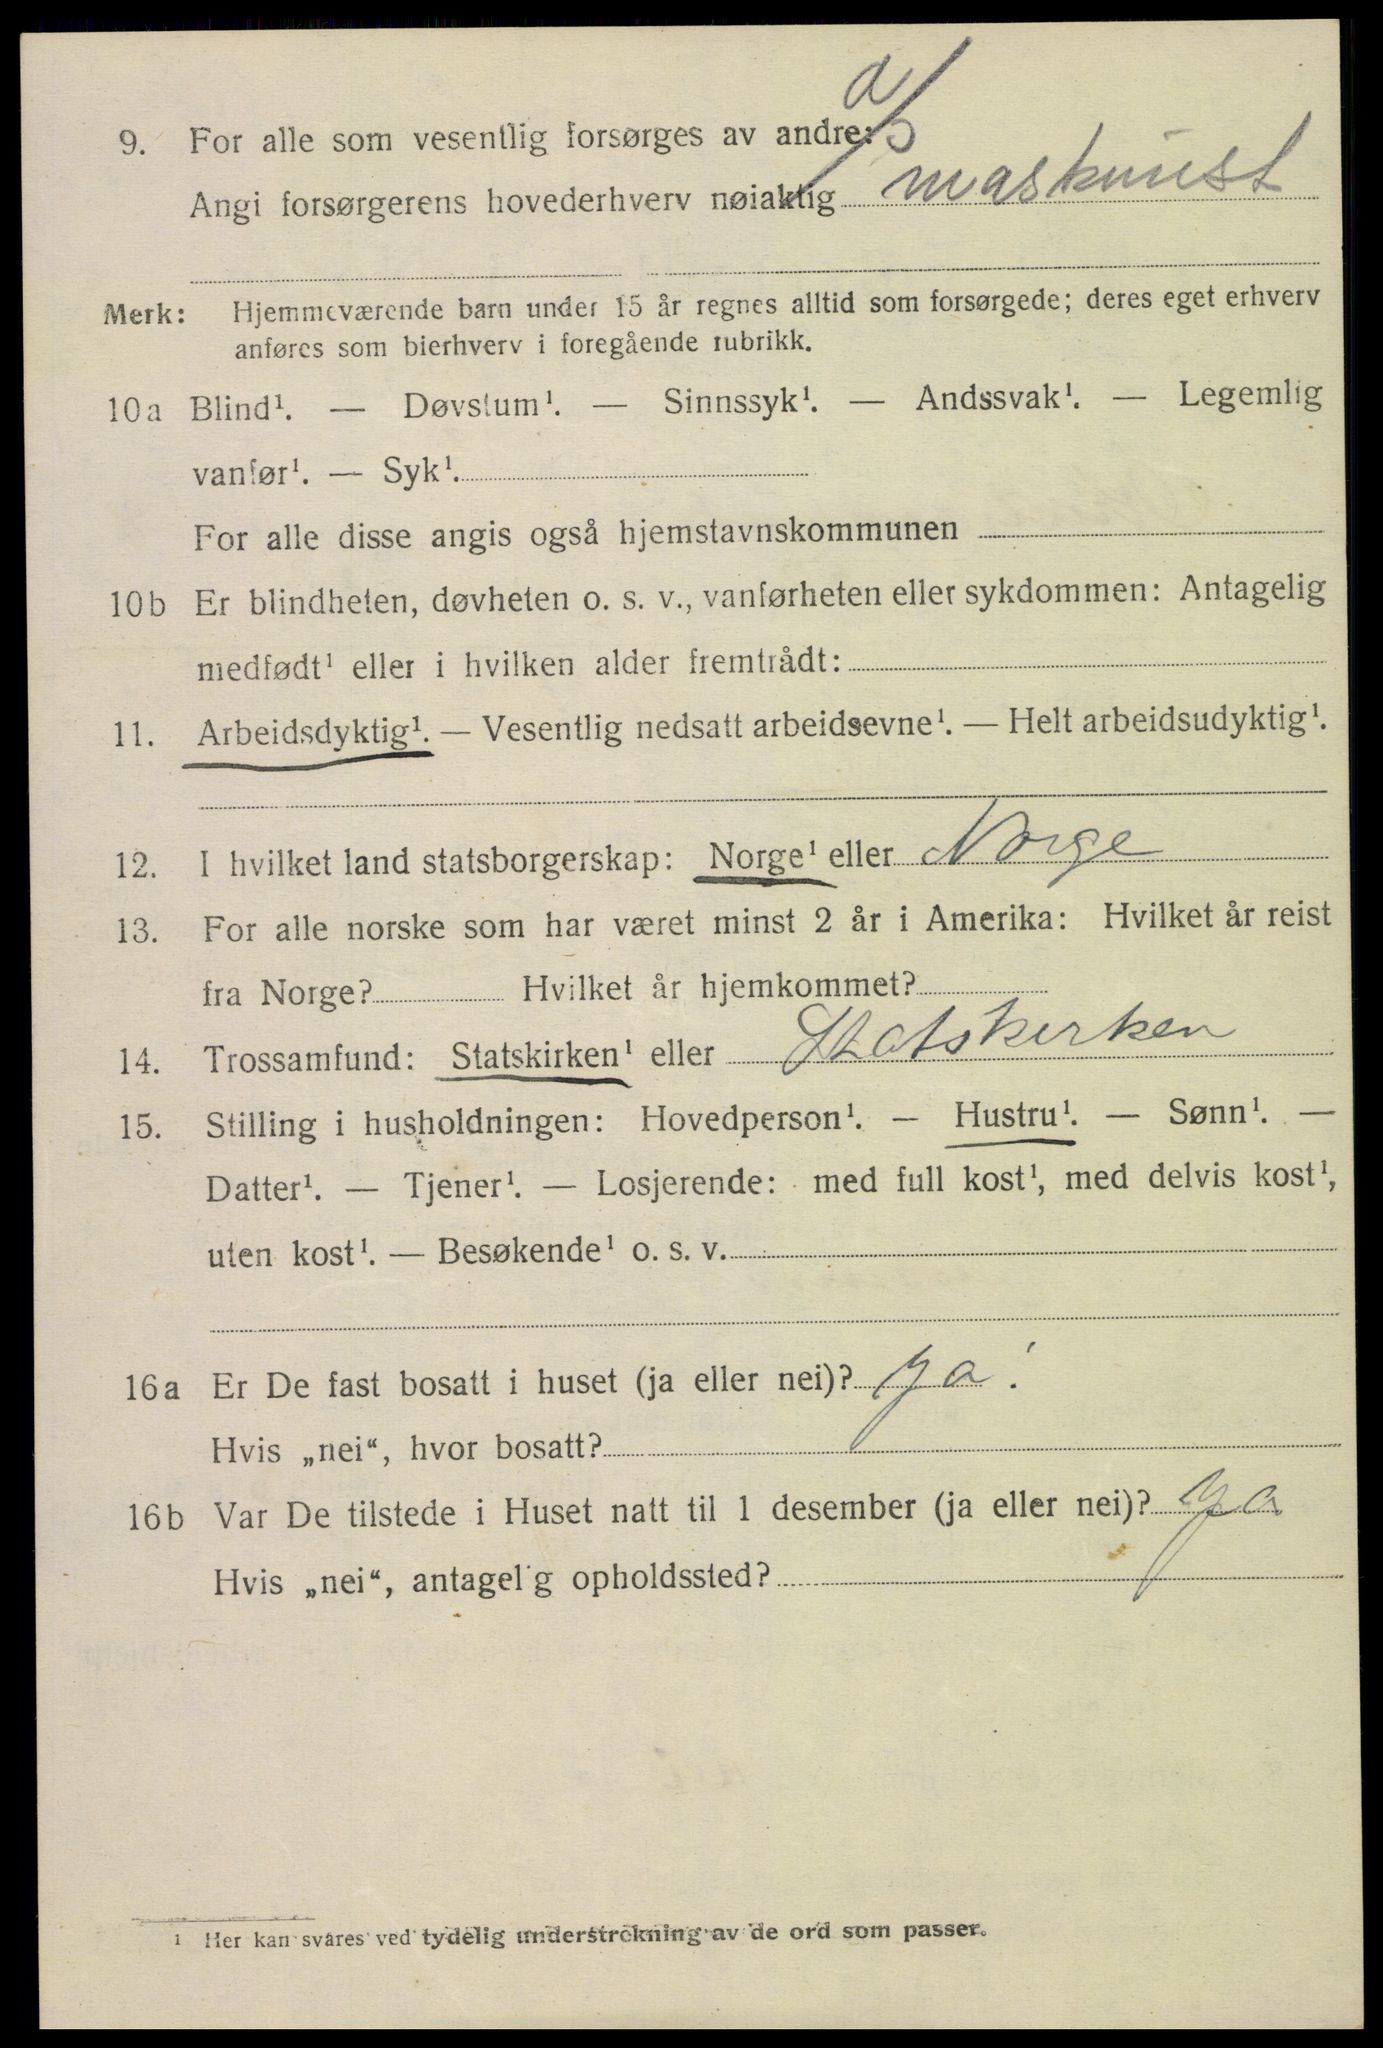 9. For alle som vesentlig forsørges av andre: a/s
Angi forsørgerens hovederhverv nøiaktig maskinist
Merk: Hjemmeværende barn under 15 år regnes alltid som forsørgede; deres eget erhverv
anføres som bierhverv i foregående rubrikk.
10a Blind¹. — Døvstum¹. — Sinnssyk¹. — Andssvak¹. — Legemlig
vanfør¹. — Syk¹.
For alle disse angis også hjemstavnskommunen
10b Er blindheten, døvheten o. s. v., vanførheten eller sykdommen: Antagelig
medfødt¹ eller i hvilken alder fremtrådt:
11. Arbeidsdyktig¹. — Vesentlig nedsatt arbeidsevne¹. — Helt arbeidsudyktig¹.
12. I hvilket land statsborgerskap: Norge¹ eller Norge
13. For alle norske som har været minst 2 år i Amerika: Hvilket år reist
fra Norge? Hvilket år hjemkommet?
14. Trossamfund: Statskirken¹ eller Statskirken
15. Stilling i husholdningen: Hovedperson¹. — Hustru¹. — Sønn¹. —
Datter¹. — Tjener¹. — Losjerende: med full kost¹, med delvis kost¹,
uten kost¹. — Besøkende¹ o. s. v.
16a Er De fast bosatt i huset (ja eller nei)? ja!
Hvis „nei“, hvor bosatt?
16b Var De tilstede i Huset natt til 1 desember (ja eller nei)? ja
Hvis „nei“, antagelig opholdssted?
1 Her kan svares ved tydelig understrekning av de ord som passer.